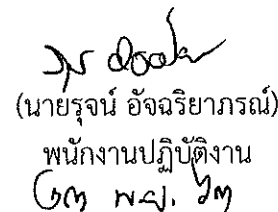 (นายรุจน์ อัจฉริยาภรณ์)
พนักงานปฏิบัติงาน
๒๓ พ.ย. ๖๓